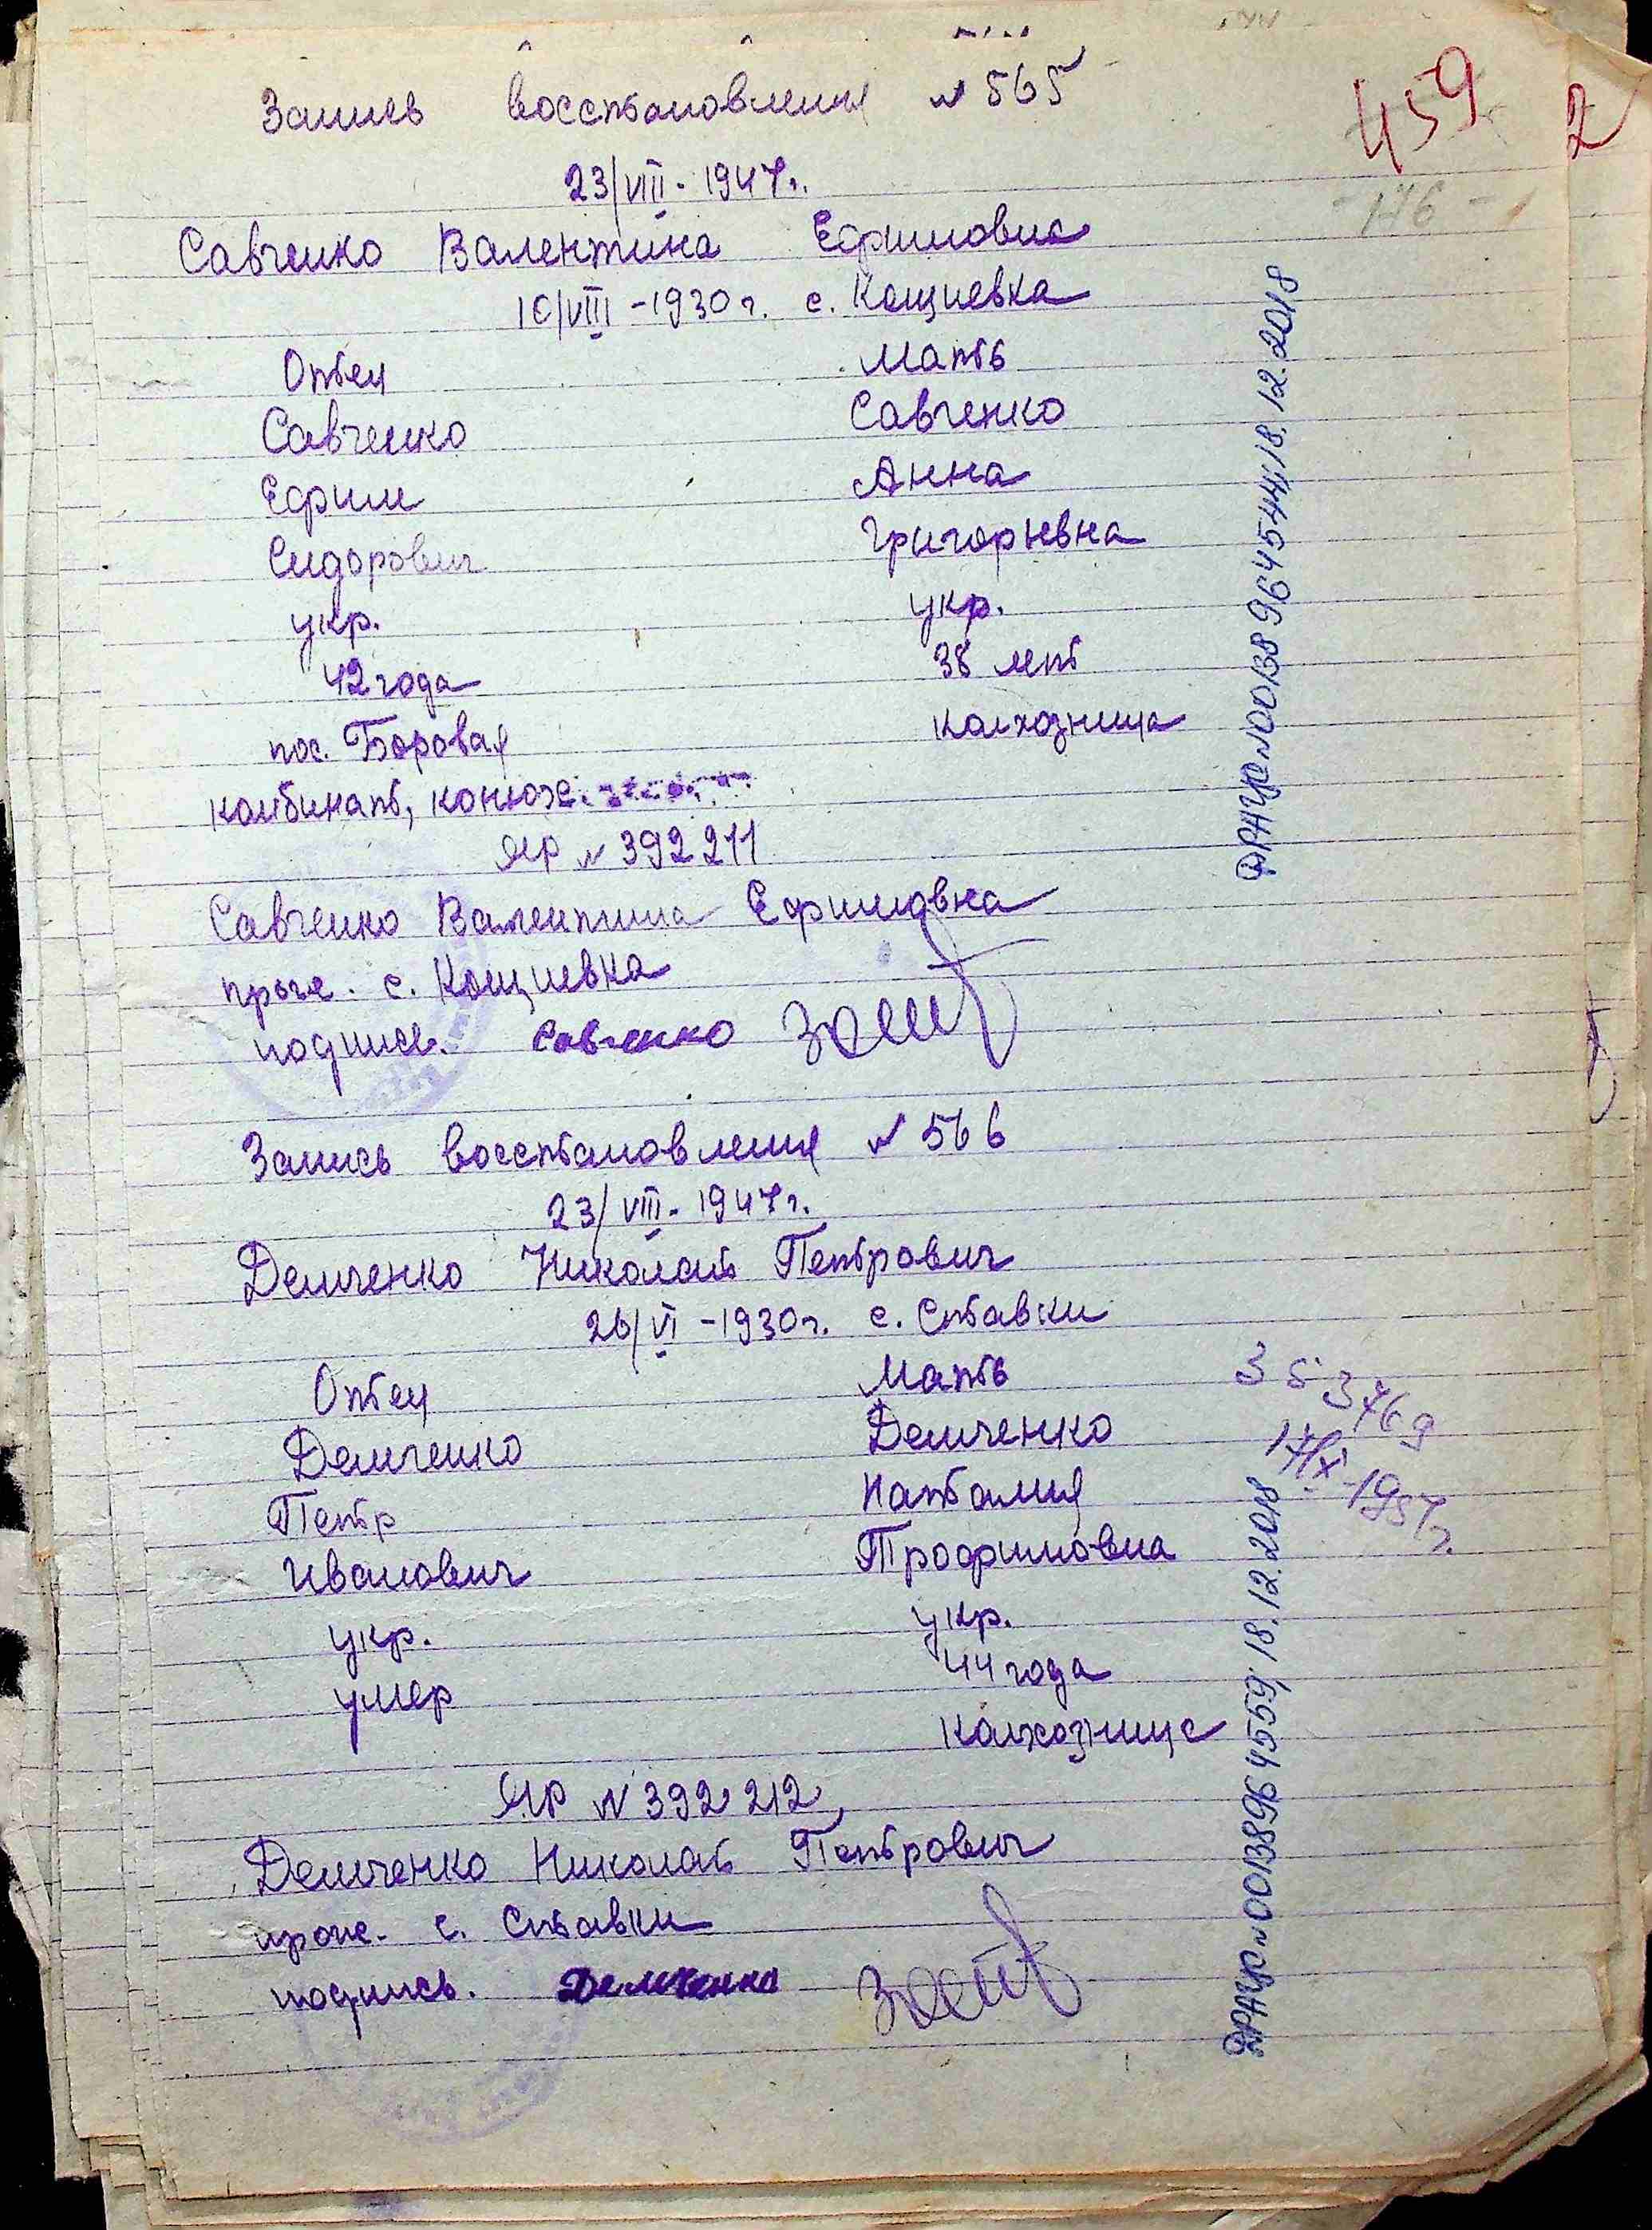 Запись восстановления № 565
459
2
23/VIII - 1947г.
- 176 -
Савченко Валентина Ефимовна
10/VIII - 1930г. с. Кощиевка
Отец Мать
Савченко Савченко
Ефим Анна
Сидорович Григорьевна
укр. укр.
42 года 38 лет
пос. Боровая колхозница
комбинат, конюх.
ЯР № 392211
Савченко Валентина Ефимовна
прож. с. Кощиевка
подпись. Савченко
ДРАЦС №00138964544; 18.12.2018
Запись восстановления № 566
23/VIII - 1947г.
Демченко Николай Петрович
26/VI - 1930г. с. Ставки
Отец Мать
Демченко Демченко
Петр Наталия
Иванович Трофимовна
укр. укр.
умер 44 года
колхозница
35 3769
17/IX-1957г.
ЯР № 392212
Демченко Николай Петрович
прож. с. Ставки
подпись. Демченко
ДРАЦС №00138964559; 18.12.2018